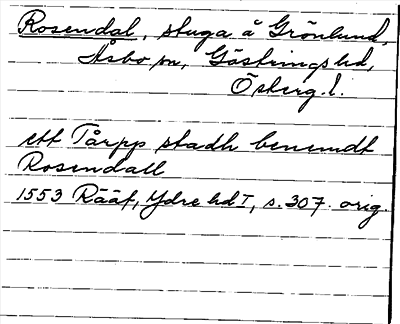 Rosendal, stuga å Grönlund,
Åsbo sn, Göstrings hd,
Österg. l.
ett Tårpp stadh benemdt
Rosendall
1553 Rääf, Ydre hd I, s. 307. orig.